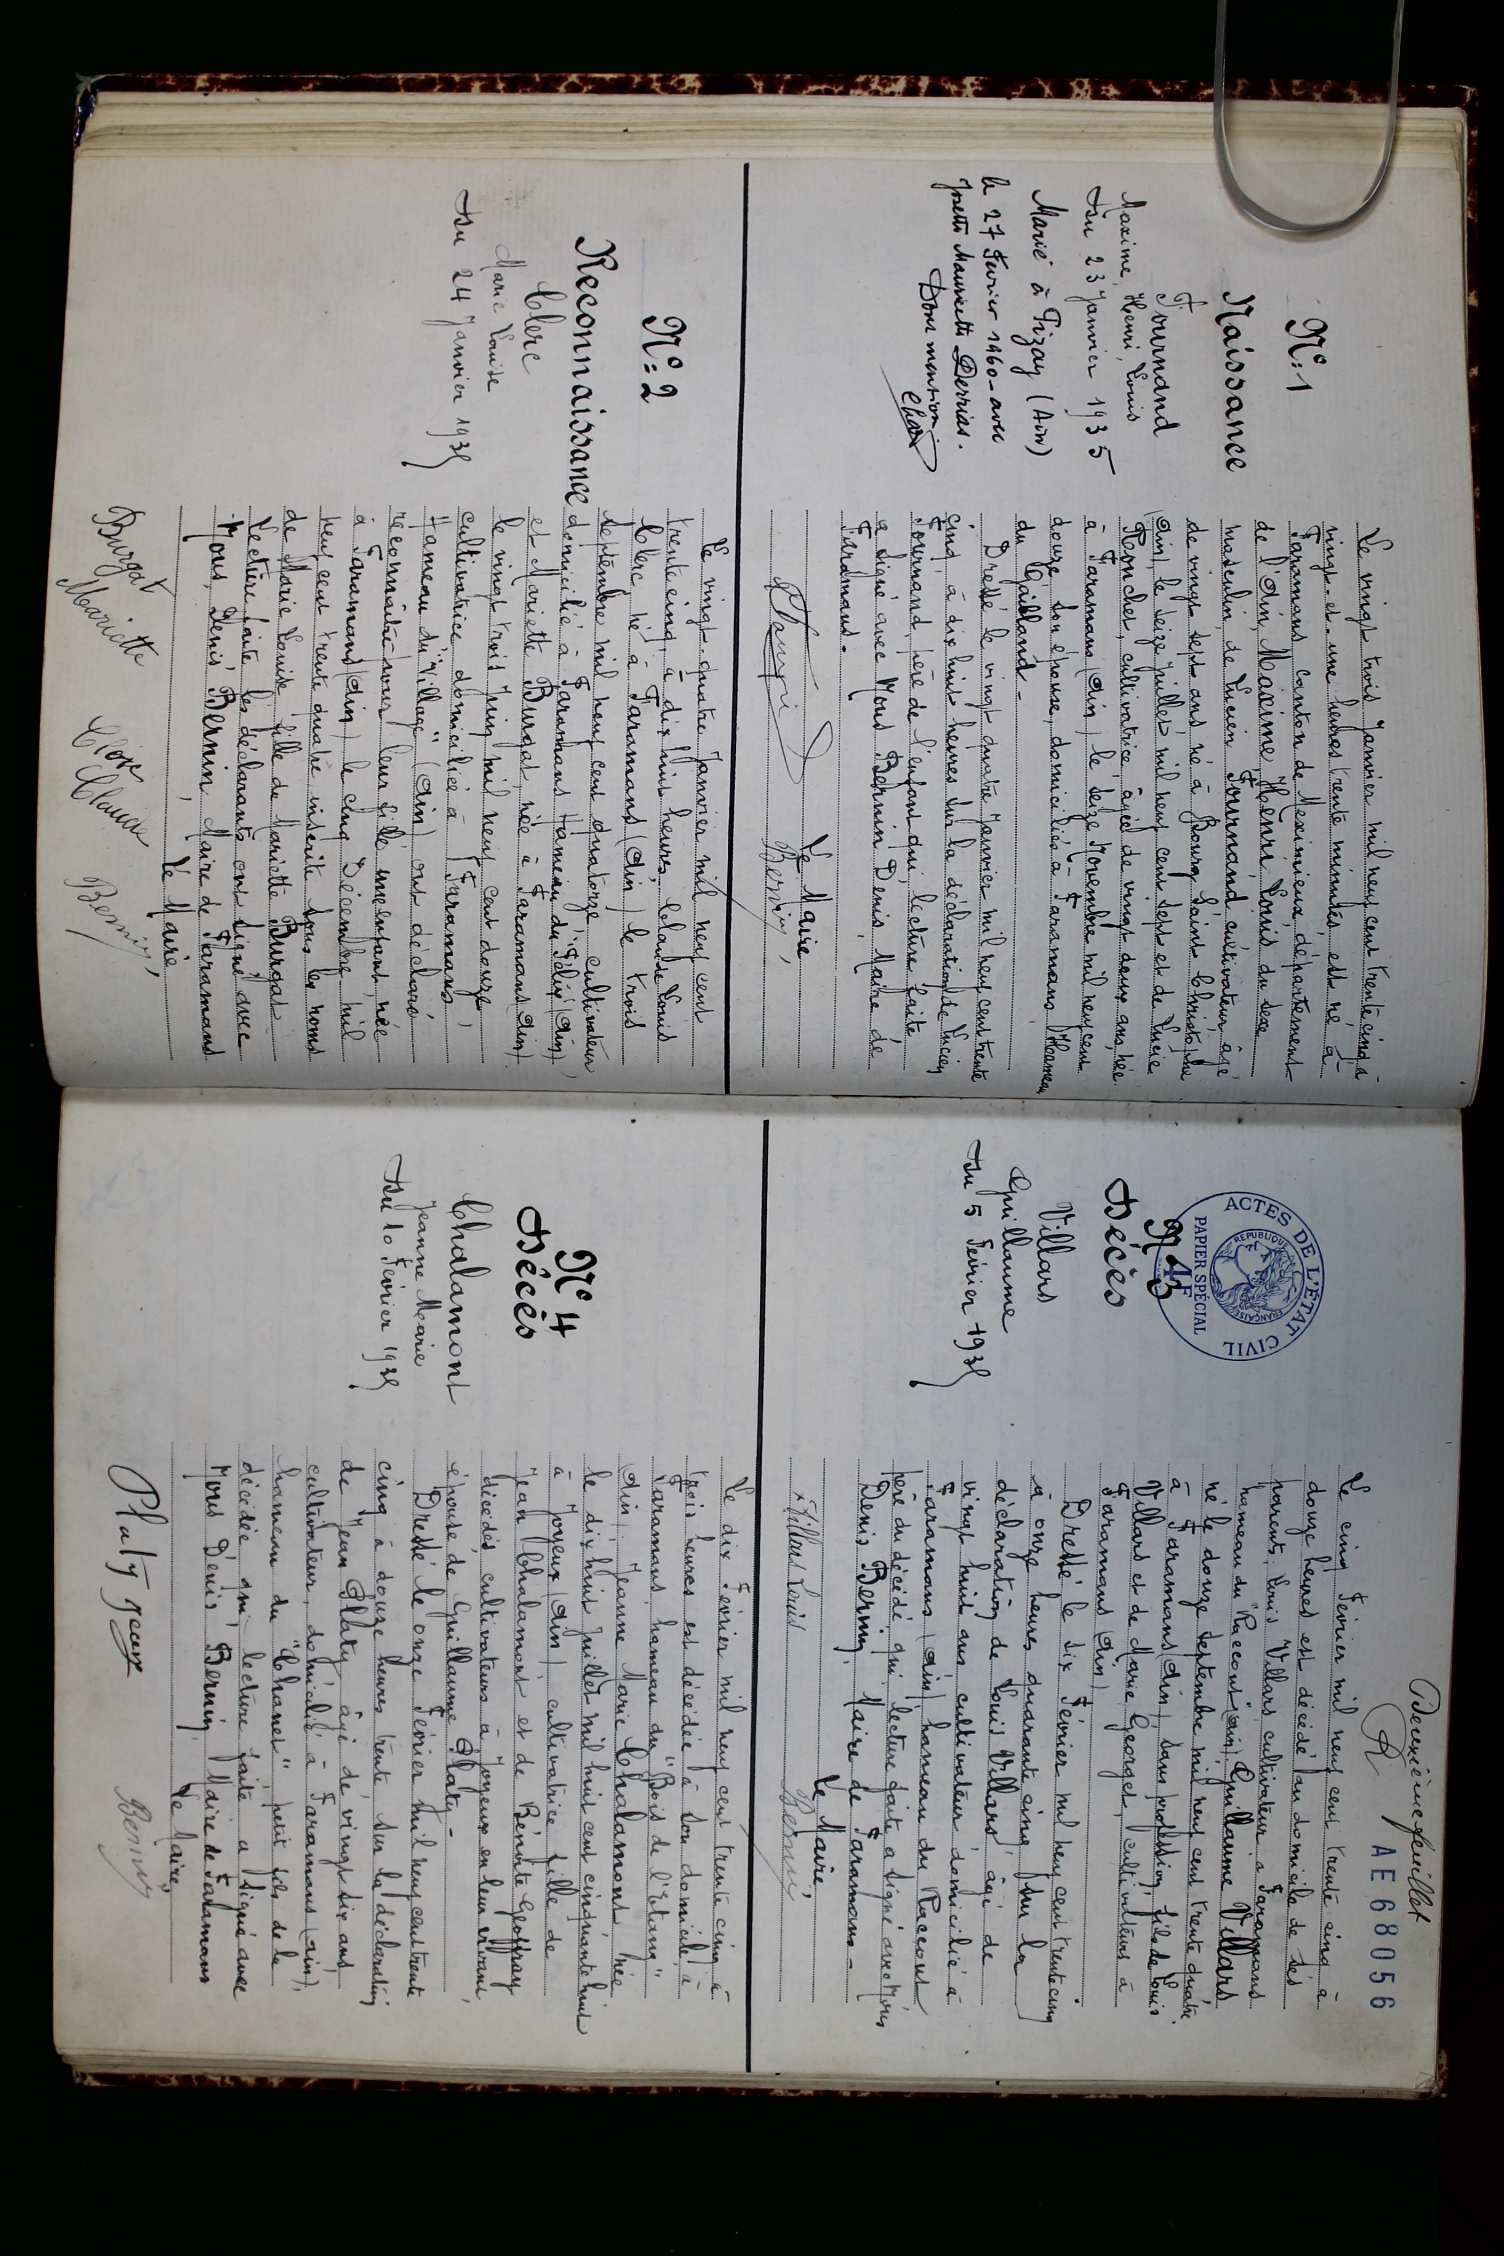 N° 1
Naissance
Fournand
Maxime, Henri, Louis
Du 23 Janvier 1935
Marié à Pizay (Ain)
le 27 Fevrier 1960 - avec
Josette Mauricette Derrias.
Dont mention
Le vingt trois Janvier mil neuf cent trente cinq, à
vingt-et-une heures trente minutes, est né à
Faramans, canton de Meximieux, département
de l'Ain, Maxime, Henri, Louis du sexe
masculin, de Lucien Fournand, cultivateur, âgé
de vingt sept ans, né à Bourg Saint Christophe
(Ain) le seize Juillet mil neuf cent sept et de Lucie
Ronchet, cultivatrice âgée de vingt deux ans, née
à Faramans (Ain) le seize Novembre mil neuf cent
douze, son épouse, domiciliés à Faramans, Hameau
du Gailland -
Dressé le vingt quatre Janvier mil neuf cent trente
cinq, à dix huit heures sur la déclaration de Lucien
Fournand, père de l'enfant qui, lecture faite,
a signé avec Nous Bernin Denis, Maire de
Faramans.
Le Maire,
Bernin
N° 2
Reconnaissance
Clerc
Marie Louise
Du 24 Janvier 1935
Le vingt-quatre Janvier mil neuf cent
trente cinq, à dix huit heures, Claude Louis
Clerc, né à Faramans (Ain) le trois
Septembre mil neuf cent quatorze, cultivateur,
domicilié à Faramans Hameau du (Ain)
et Mariette Burgat, née à Faramans (Ain)
le vingt trois Juin mil neuf cent douze,
cultivatrice domiciliée à Faramans,
Hameau du "Village" (Ain) ont déclaré
reconnaître pour leur fille une enfant, née
à Faramans (Ain) le cinq Décembre mil
neuf cent trente quatre, inscrite sous les noms
de Marie Louise, fille de Mariette Burgat -
Lecture faite, les déclarants ont signé avec
Nous, Denis Bernin, Maire de Faramans
Le Maire
Burgat Mariette Clerc Claude Bernin
Deuxième feuillet
AE 68056
ACTES DE L'ÉTAT CIVIL
REPUBLIQUE FRANÇAISE
PAPIER SPÉCIAL
4F
N° 3
Décès
Villars
Guillaume
Du 5 Février 1935
Le cinq Février mil neuf cent trente cinq à
douze heures est décédé au domicile de ses
parents, Louis Villars, cultivateur à Faramans
hameau du "Raccout" (Ain), Guillaume Villars
né le douze Septembre mil neuf cent trente quatre
à Faramans (Ain), sans profession, fils de Louis
Villars et de Marie Georges, cultivateurs à
Faramans (Ain)
Dressé le six Février mil neuf cent trente cinq
à onze heures quarante cinq sur la
déclaration de Louis Villars âgé de
vingt huit ans cultivateur domicilié à
Faramans (Ain) hameau du Raccout
père du décédé, qui lecture faite a signé avec Nous
Denis Bernin, Maire de Faramans -
Le Maire,
Villars Louis Bernin
N° 4
Décès
Chalamont
Jeanne Marie
Du 10 Février 1935
Le dix Février mil neuf cent trente cinq à
trois heures est décédée à son domicile à
Faramans hameau du "Bois de l'Etang"
(Ain), Jeanne Marie Chalamont née
le dix huit Juillet mil huit cent cinquante huit
à Joyeux (Ain), cultivatrice fille de
Jean Chalamont et de Bénoite Geoffray
décédés, cultivateurs à Joyeux en leur vivant,
épouse de Guillaume Platy -
Dressé le onze Février mil neuf cent trente
cinq à douze heures trente, sur la déclaration
de Jean Platy âgé de vingt six ans,
cultivateur, domicilié à Faramans (Ain),
hameau du "Chanet", petit fils de la
décédée qui lecture faite a signé avec
Nous Denis Bernin Maire de Faramans
Le Maire,
Platy Jean Bernin